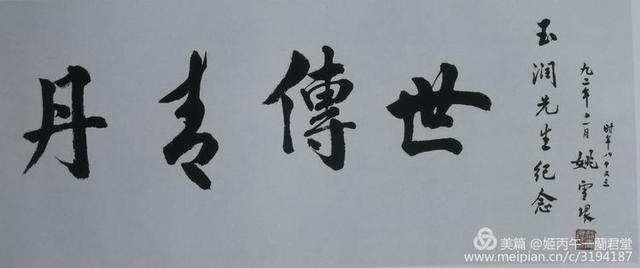 丹青傳世
玉润先生纪念
九二年十一月 姚雪垠
时年八十又三
美篇 @姬丙午一蘭君堂
www.meipian.cn/c/3194187